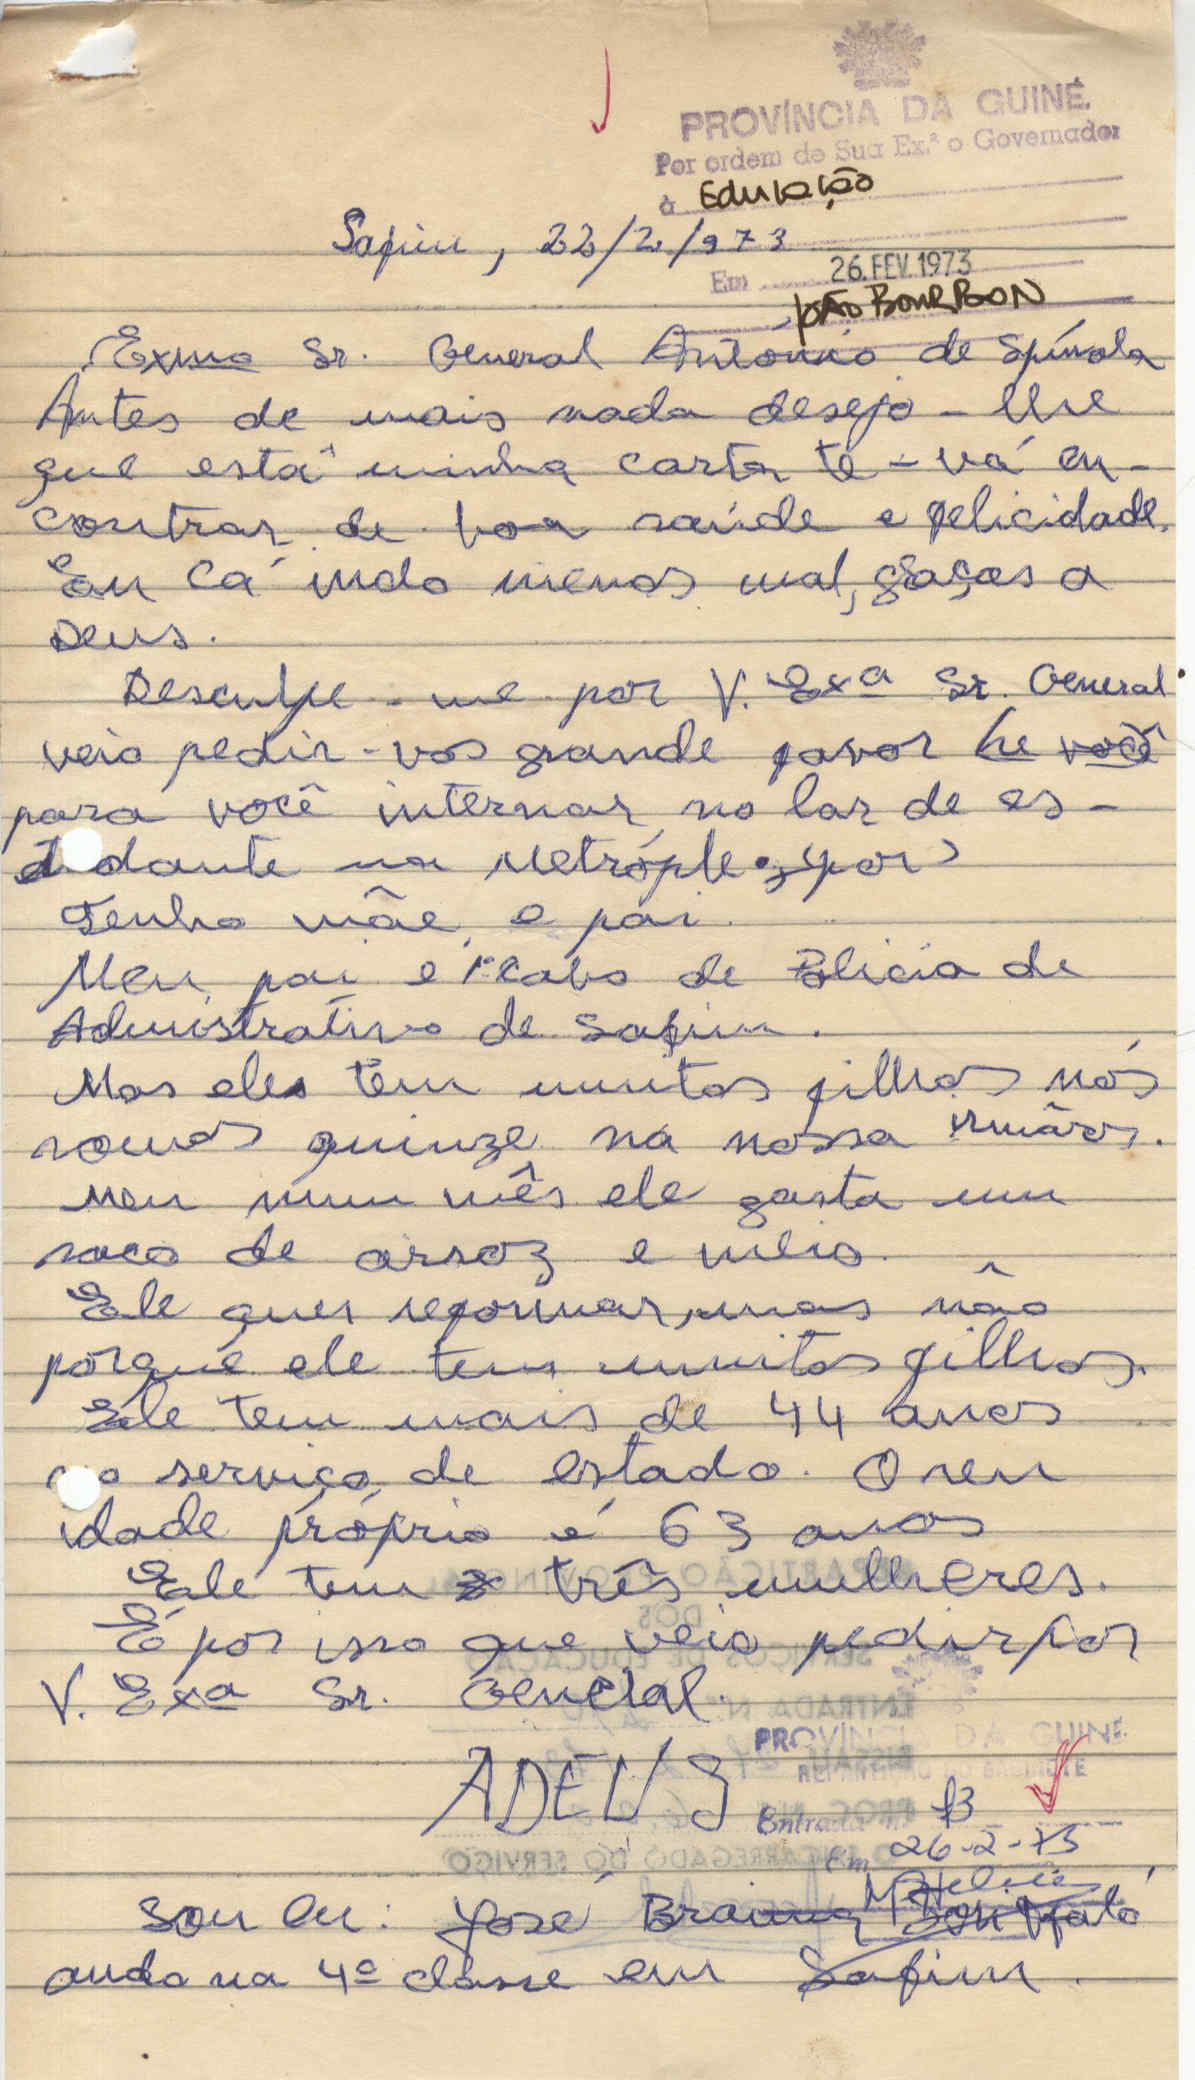 PROVÍNCIA DA GUINÉ
Por ordem de Sua Ex.ª o Governador
à Educação
Safim, 22/2/973
Em 26.FEV.1973
JOÃO BOURBON
Exmo Sr. General António de Spínola
Antes de mais nada desejo-lhe
que está minha carta te-vá en-
contrar de boa saúde e felicidade.
Eu cá indo menos mal, graças a
Deus.
Desculpe-me por V. Exa Sr. General
veio pedir-vos grande favor he você
para você internar no lar de es-
dante na Metróple, por
Tenho mãe, e pai.
Meu pai é 1º cabo de Policia de
Administrativo de Safim.
Mas eles tem muitos filhos nós
somos quinze na nossa irmãos.
Meu num mês ele gasta um
saco de arroz e meio.
Ele quer reformar, mas não
porque ele tem muitos filhos.
Ele tem mais de 44 anos
no serviço de estado. O seu
idade próprio é 63 anos
Ele tem três mulheres.
É por isso que veio pedir por
V. Exa Sr. General.
ADEUS
PROVÍNCIA DA GUINÉ
REPARTIÇÃO DO GABINETE
Entrada n.º
Em 26-2-73
Sou eu: José
ando na 4ª classe em Safim.